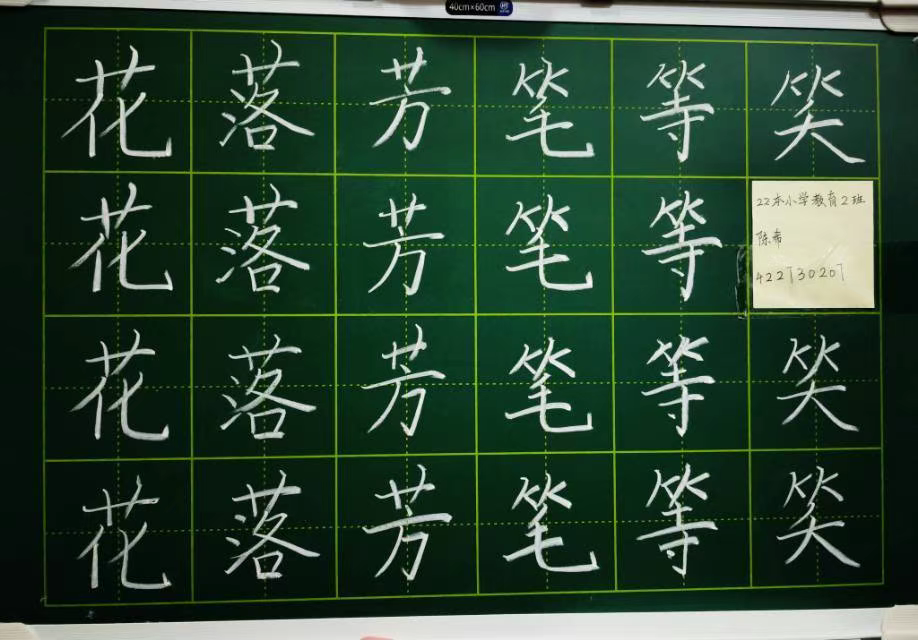 40cm×60cm
花落芳笔等笑
花落芳笔等
22本小学教育2班
陈希
422730207
花落芳笔等笑
花落芳笔等笑